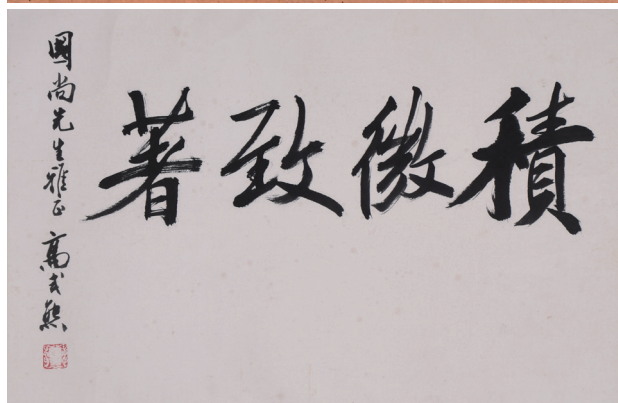 積微致著
國尚先生雅正
高式熊